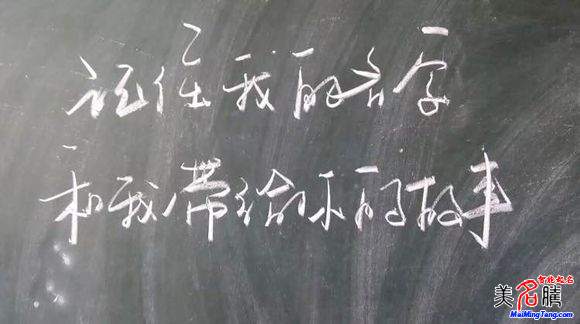 记住我的名字
和我带给你的故事
智能起名
美名腾
MaiMingTang.com